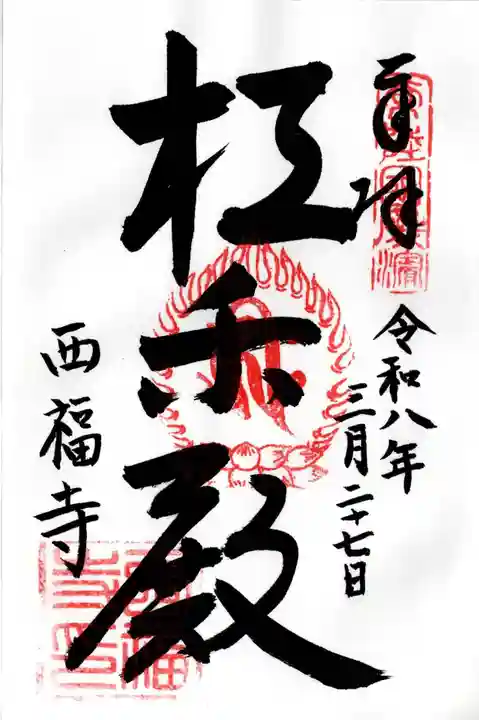 奉拝
令和八年
三月二十七日
極楽殿
西福寺